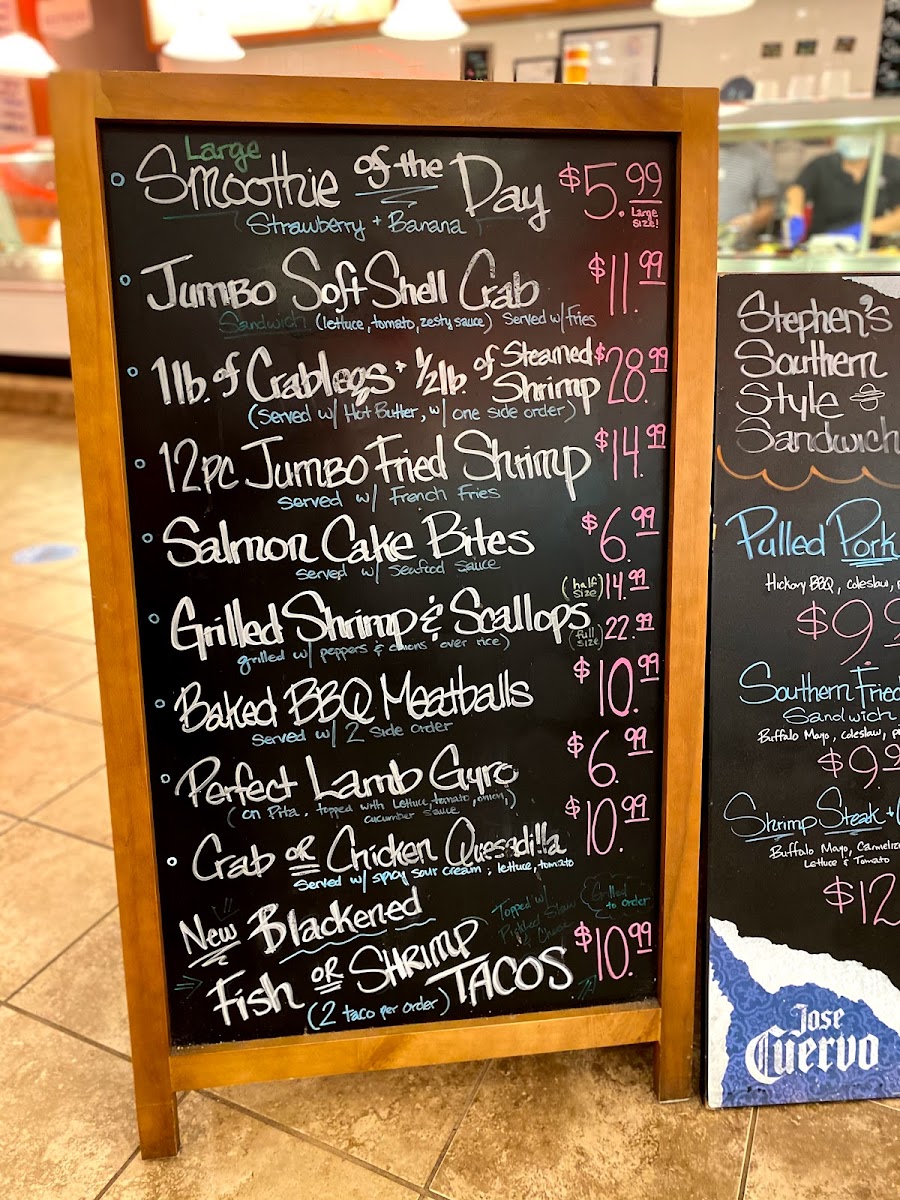 Large
Smoothie of the Day $5.99
Strawberry + Banana
Large
size!
Jumbo Soft Shell Crab $11.99
Sandwich (lettuce, tomato, zesty sauce) Served w/ Fries
1lb. of Crablegs + 1/2 lb. of Steamed Shrimp $28.99
(Served w/ Hot Butter, w/ one side order)
12pc Jumbo Fried Shrimp $14.99
served w/ French Fries
Salmon Cake Bites $6.99
served w/ Seafood Sauce
(half size) 14.99
Grilled Shrimp & Scallops
(full size) 22.99
grilled w/ peppers & onions over rice)
Baked BBQ Meatballs $10.99
served w/ 2 side order
Perfect Lamb Gyro $6.99
(on Pita. topped with Lettuce, tomato, onion,)
cucumber sauce
Crab or Chicken Quesadilla $10.99
Served w/ spicy sour cream; lettuce, tomato
New Blackened
Topped w/
Pickled Slaw
& Cheese
Grilled
to order
Fish or Shrimp Tacos $10.99
(2 taco per order)
Stephen's
Southern
Style
Sandwich
Pulled Pork
Hickory BBQ, coleslaw,
$9.9
Southern Fried
Sandwich
Buffalo Mayo, coleslaw,
$9.9
Shrimp Steak +
Buffalo Mayo,
Lettuce & Tomato
$12
Jose
Cuervo